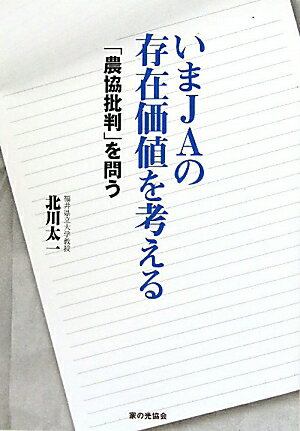 いまJAの
存在価値を考える
「農協批判」を問う
福井県立大学教授
北川太一
家の光協会